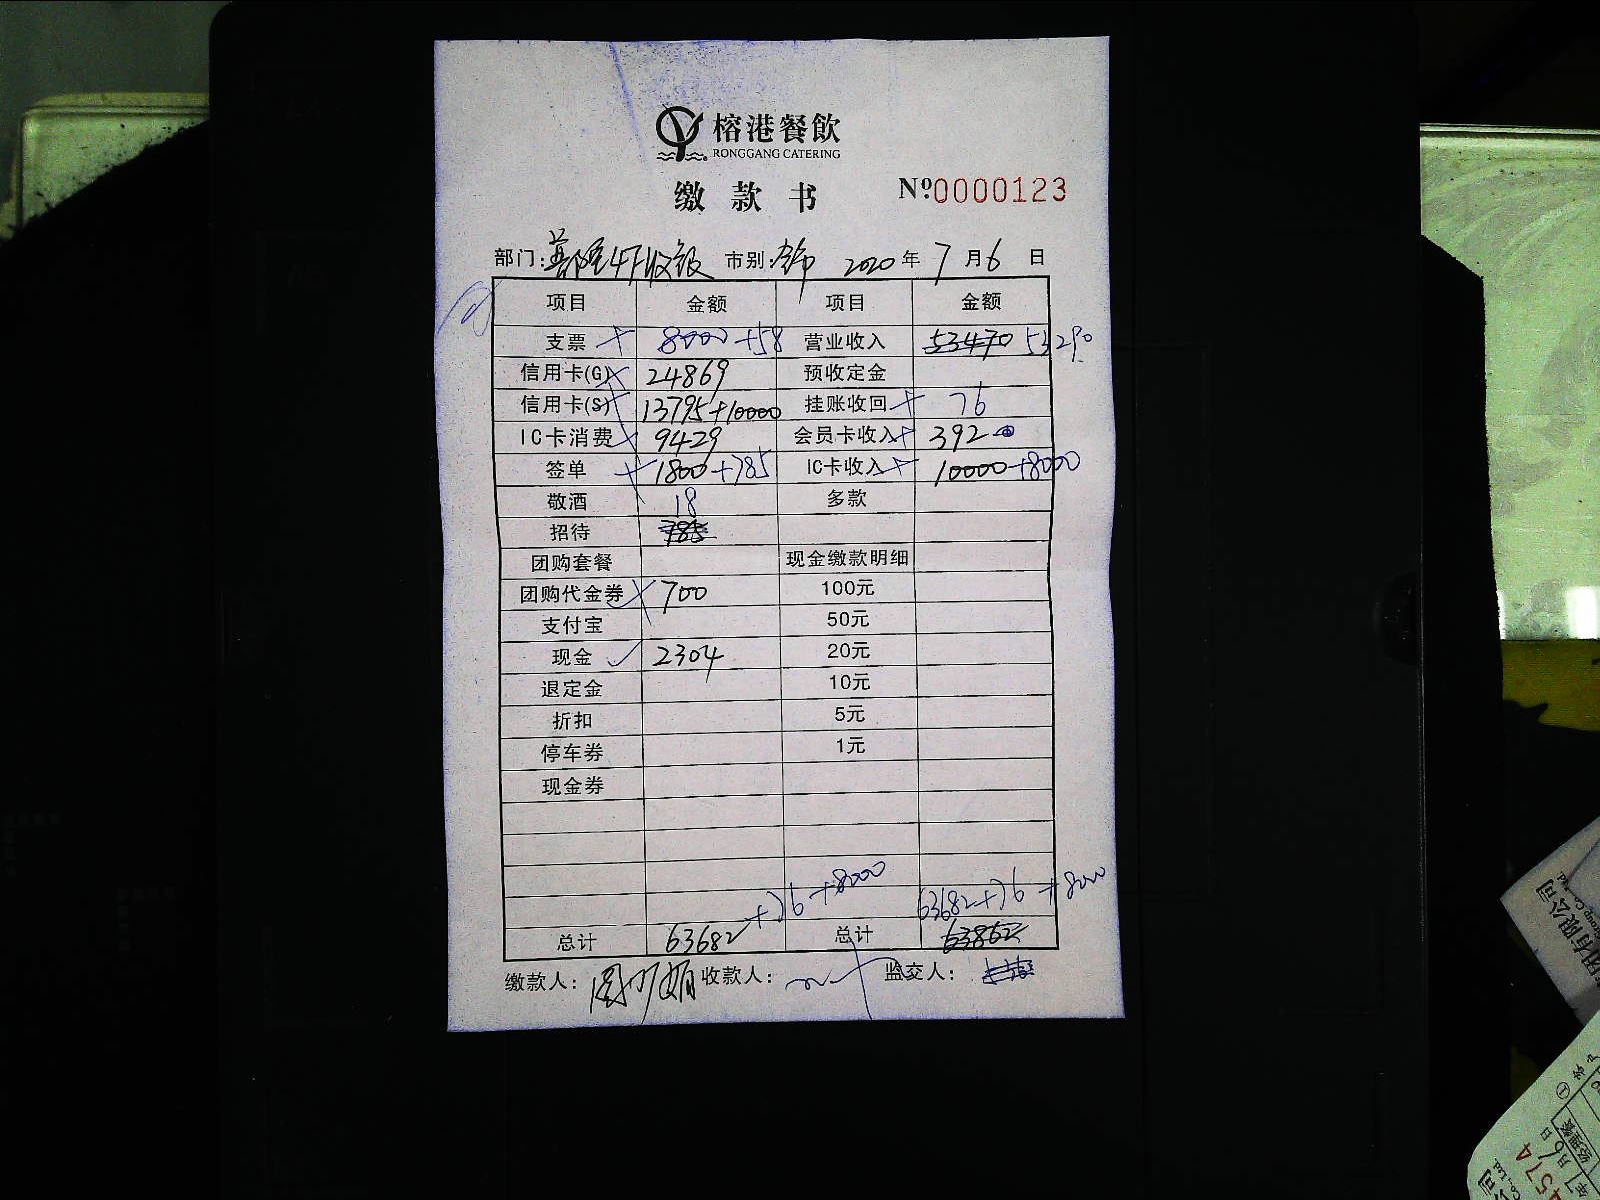 榕港餐飲
RONGGANG CATERING
缴款书 Nº0000123
部门: 4F收银 市别: 2020年7月6日
项目 金额 项目 金额
支票 8000+58 营业收入 53470 53290
信用卡(G) 24869 预收定金
信用卡(S) 13795+10000 挂账收回 76
IC卡消费 9429 会员卡收入 392
签单 1800+785 IC卡收入 10000+8000
敬酒 18 多款
招待 785
团购套餐 现金缴款明细
团购代金券 700 100元
支付宝 50元
现金 2304 20元
退定金 10元
折扣 5元
停车券 1元
现金券
+76+8000 63682+76+8000
总计 63682 总计 63862
缴款人: 收款人: 监交人:
有限公司
4574
月6日